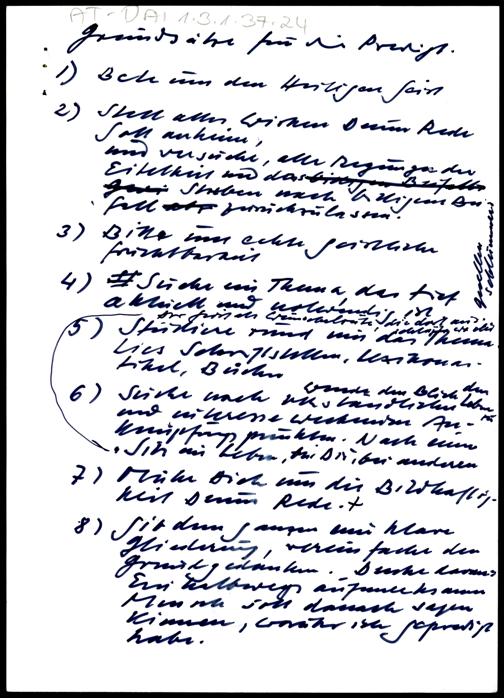 AT-DAI 1.3.1.37.24
Grundsätze für die Predigt.
1) Bete um den Heiligen Geist
2) Stell alles Wirken Deiner Rede
Gott anheim,
und versuche, alle Regungen der
Eitelkeit und das
Streben nach billigem Bei-
fall zurückzulassen.
3) Bitte um echte geistliche
Fruchtbarkeit
4) Suche ein Thema, das tief
aktuell und notwendig ist
5) Studiere rund um das Thema.
Lies Schriftstellen, Lexikonar-
tikel, Bücher
6) Suche nach verständlichen
und interesse weckenden An-
knüpfungspunkten. Nach einem
Sitz im Leben,
7) Mühe Dich um die Bildhaftig-
keit Deiner Rede. +
8) Gib dem ganzen eine klare
Gliederung, vereinfache den
Grundgedanken. Denke daran:
Ein halbwegs aufmerksamer
Mensch soll danach sagen
können, worüber ich gepredigt
habe.